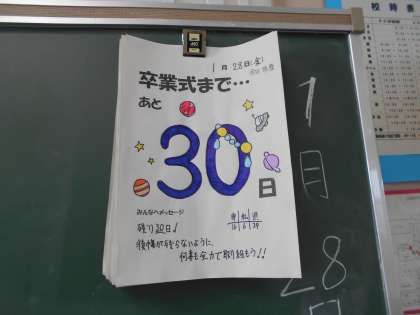 1月28日(金)
卒業式まで…
あと
30
日
みんなへメッセージ
残り30日!
後悔が残らないように、
何事も全力で取り組もう!!
1
月
28
日
校時表